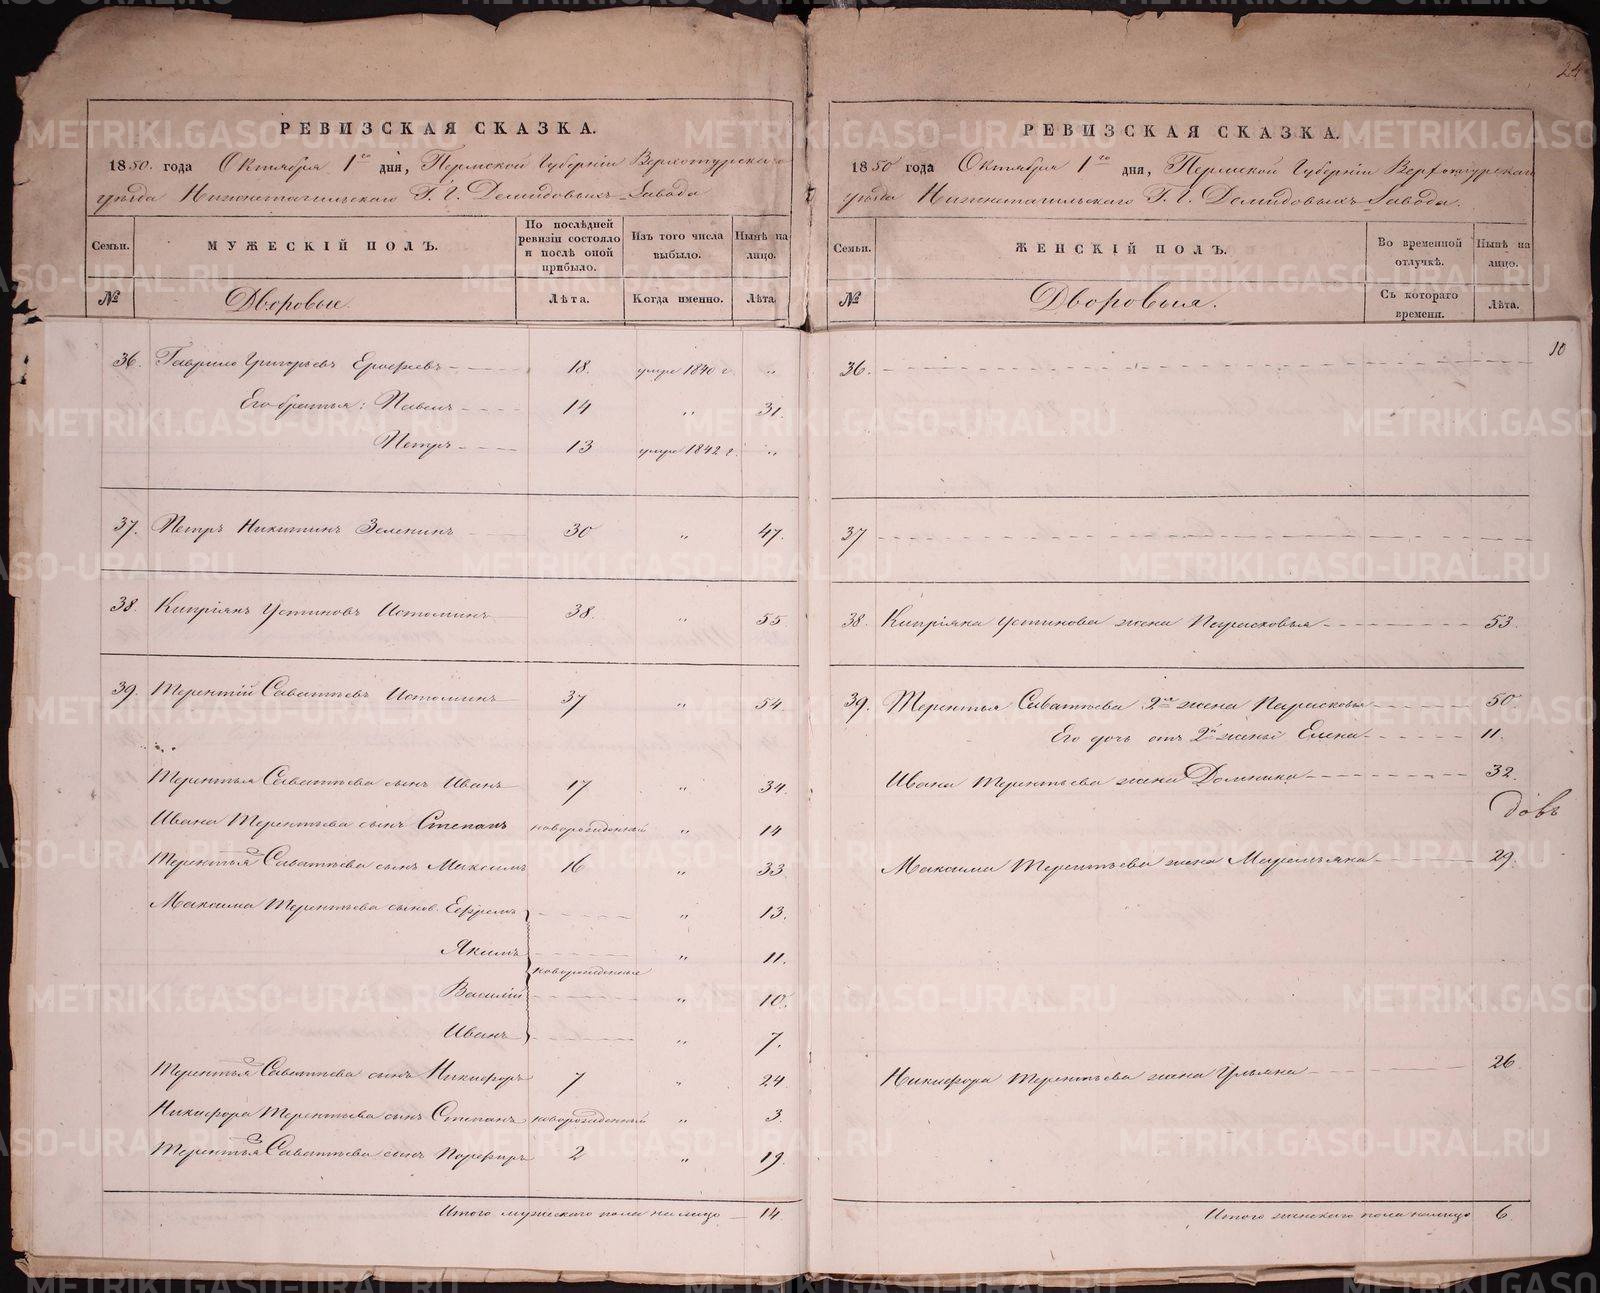 24
РЕВИЗСКАЯ СКАЗКА.
1850. года Октября 1го дня, Пермской Губерніи Верхотурскаго
уѣзда Нижнетагильскаго Г. Г. Демидовыхъ Завода
Семьи. МУЖЕСКІЙ ПОЛЪ. По послѣдней ревизіи состояло и послѣ оной прибыло. Изъ того числа выбыло. Нынѣ на лицо.
№ Дворовые. Лѣта. Когда именно. Лѣта
36. Гаврило Григорьевъ Ерофеевъ 18. умре 1840 г. „
Его братья: Павелъ 14 „ 31.
Петръ 13 умре 1842 г. „
37. Петръ Никитинъ Зеленинъ 30 „ 47.
38. Кипріянъ Устиновъ Истоминъ 38. „ 55.
39. Терентій Саватьевъ Истоминъ 37 „ 54.
Терентья Саватьева сынъ Иванъ 17 „ 34.
Ивана Терентьева сынъ Степанъ новорожденный „ 14
Терентья Саватьева сынъ Максимъ 16 „ 33
Максима Терентьева сынов. Ефремъ „ 13.
Якимъ „ 11.
новорожденные
Василій „ 10.
Иванъ „ 7.
Терентья Саватьева сынъ Никифоръ 7 „ 24
Никифора Терентьева сынъ Степанъ новорожденный „ 3.
Терентья Саватьева сынъ Порфиръ 2 „ 19.
Итого мужескаго пола на лицо 14
РЕВИЗСКАЯ СКАЗКА.
1850 года Октября 1го дня, Пермской Губерніи Верхотурскаго
уѣзда Нижнетагильскаго Г. Г. Демидовыхъ Завода.
Семьи. ЖЕНСКІЙ ПОЛЪ. Во временной отлучкѣ. Нынѣ на лицо.
№ Дворовыя. Съ котораго времени. Лѣта.
10
36.
37
38. Кипріяна Устинова жена Парасковья 53.
39. Терентья Саватьева 2я жена Парасковья 50.
Его дочь отъ 2й жены Елена 11.
Ивана Терентьева жена Домника 32.
Максима Терентьева жена Маремьяна 29.
Никифора Терентьева жена Ульяна 26
Итого женскаго пола на лицо 6
METRIKI.GASO-URAL.RU